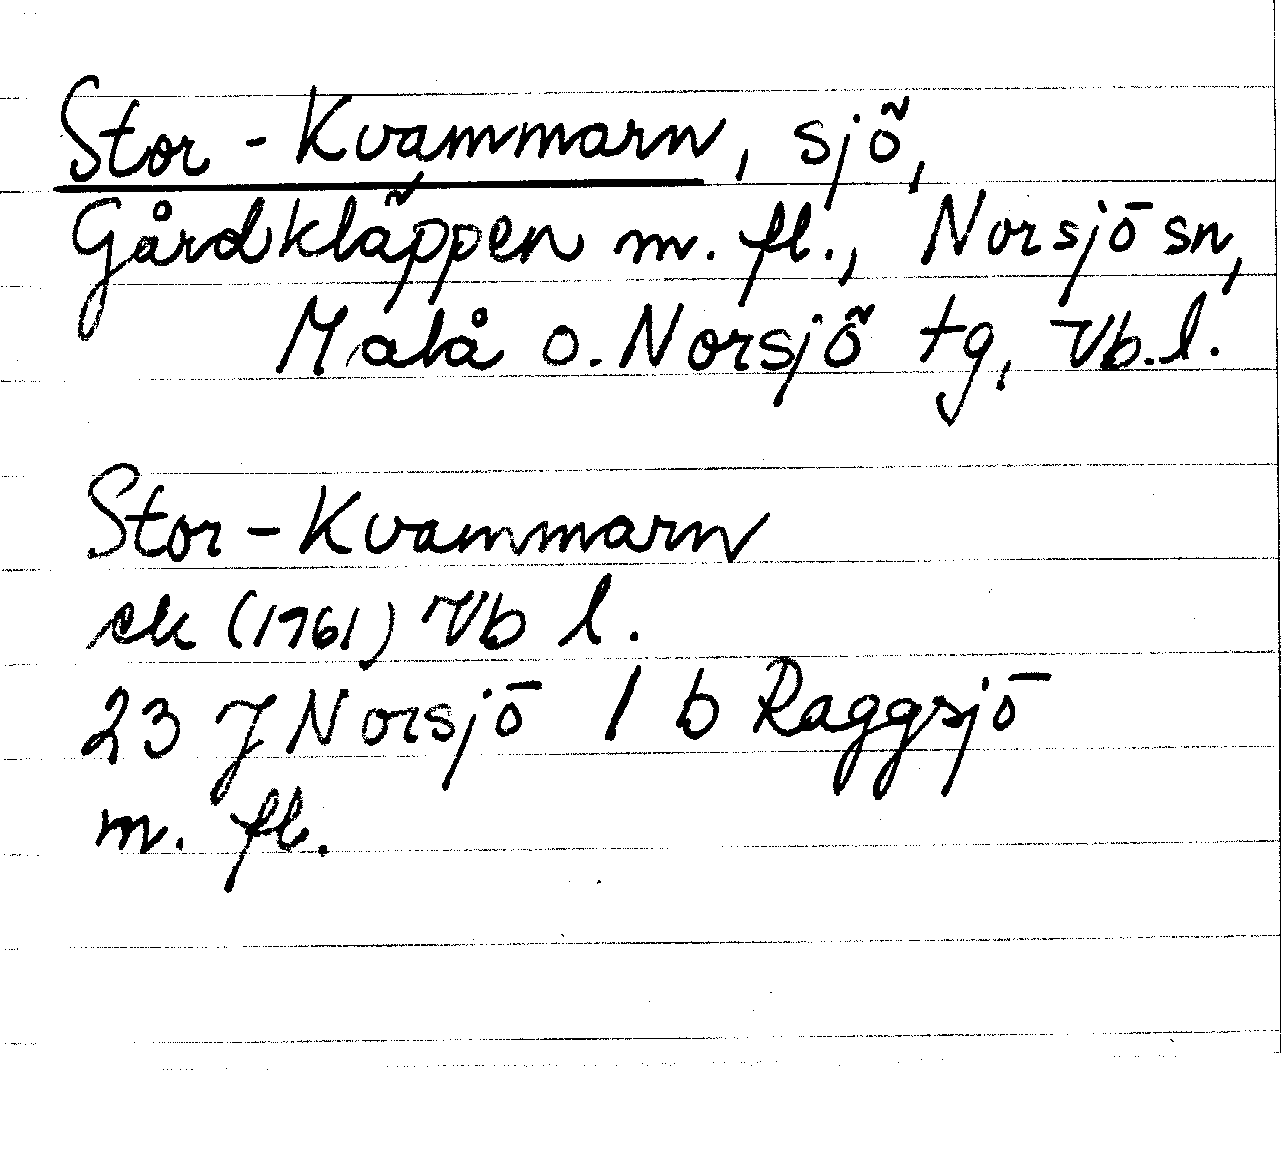 Stor-Kvammarn, sjö,
Gårdkläppen m. fl., Norsjö sn,
Malå o. Norsjö tg, Vb. l.
Stor-Kvammarn
ek (1961) Vb l.
23 J Norsjö 1 b Raggsjö
m. fl.